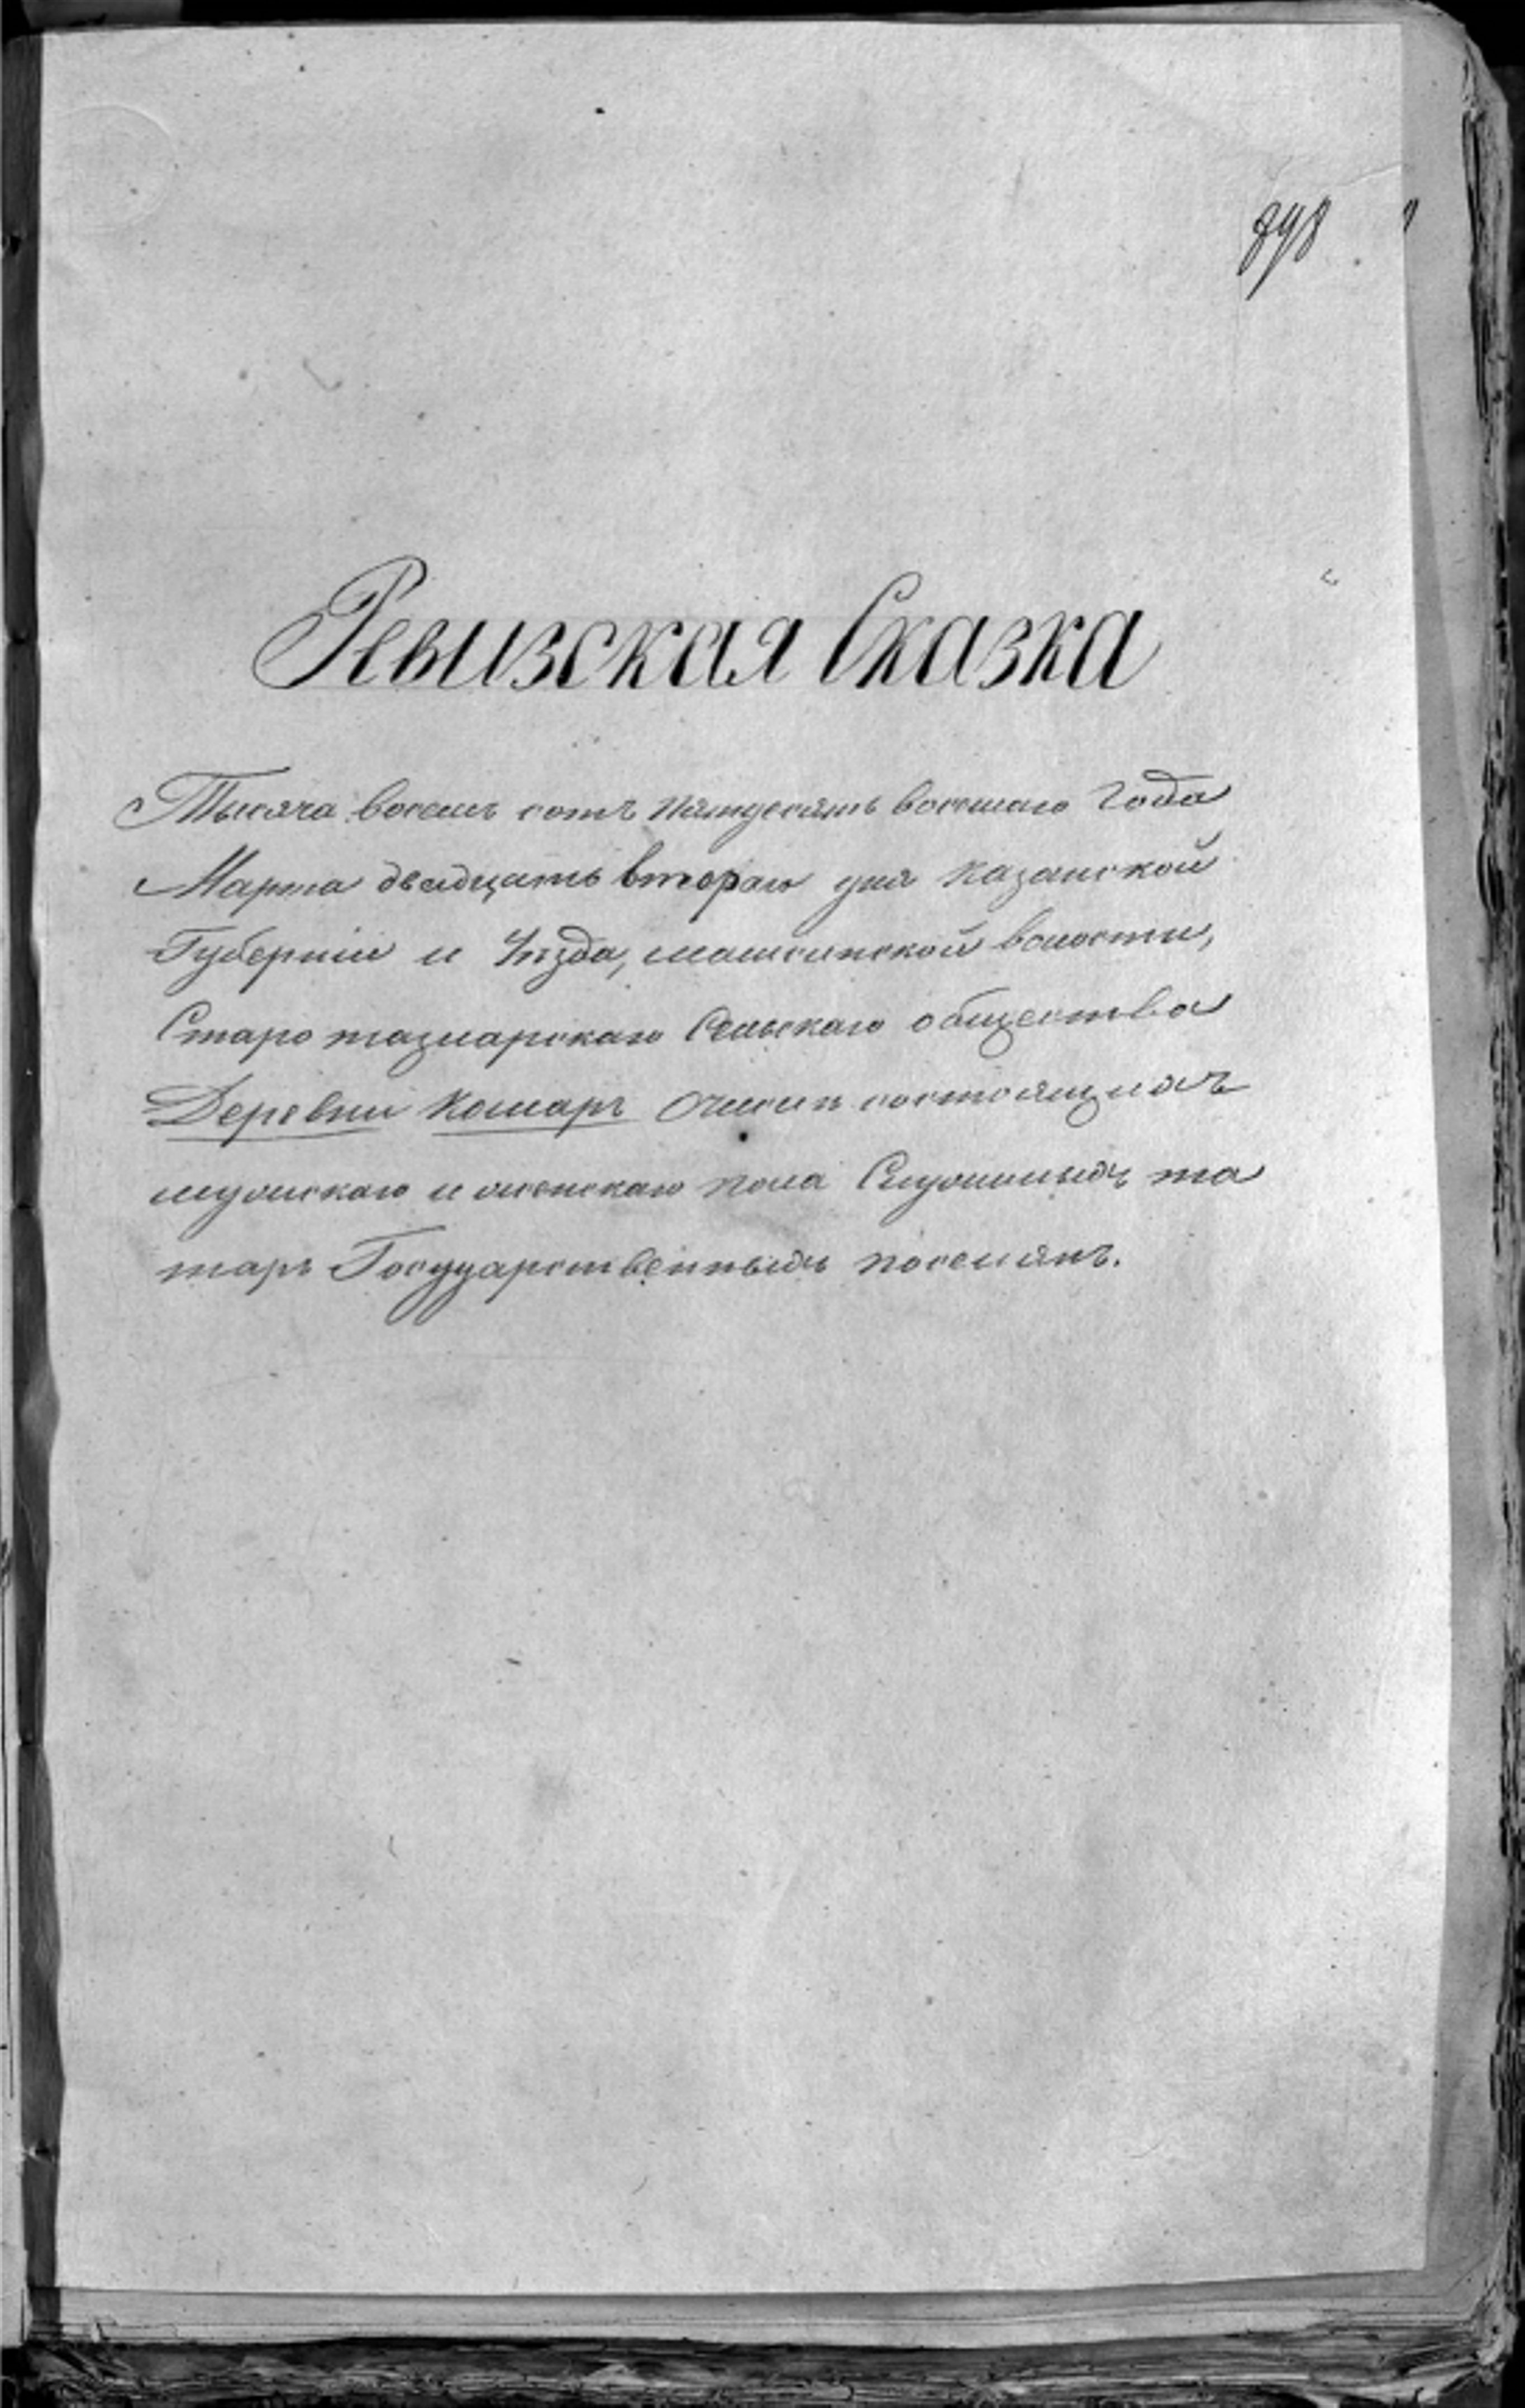 898
Ревизская Сказка
Тысяча восемь сотъ пятдесятъ восьмаго Года
Марта двадцать втораго дня Казанской
Губерніи и Уѣзда, мамсинской волости,
Старо тазларскаго Сельскаго общества
Деревни Комаръ Очисле состоящихъ
мужскаго и женскаго пола Служилыхъ та
таръ Государственныхъ поселянъ.